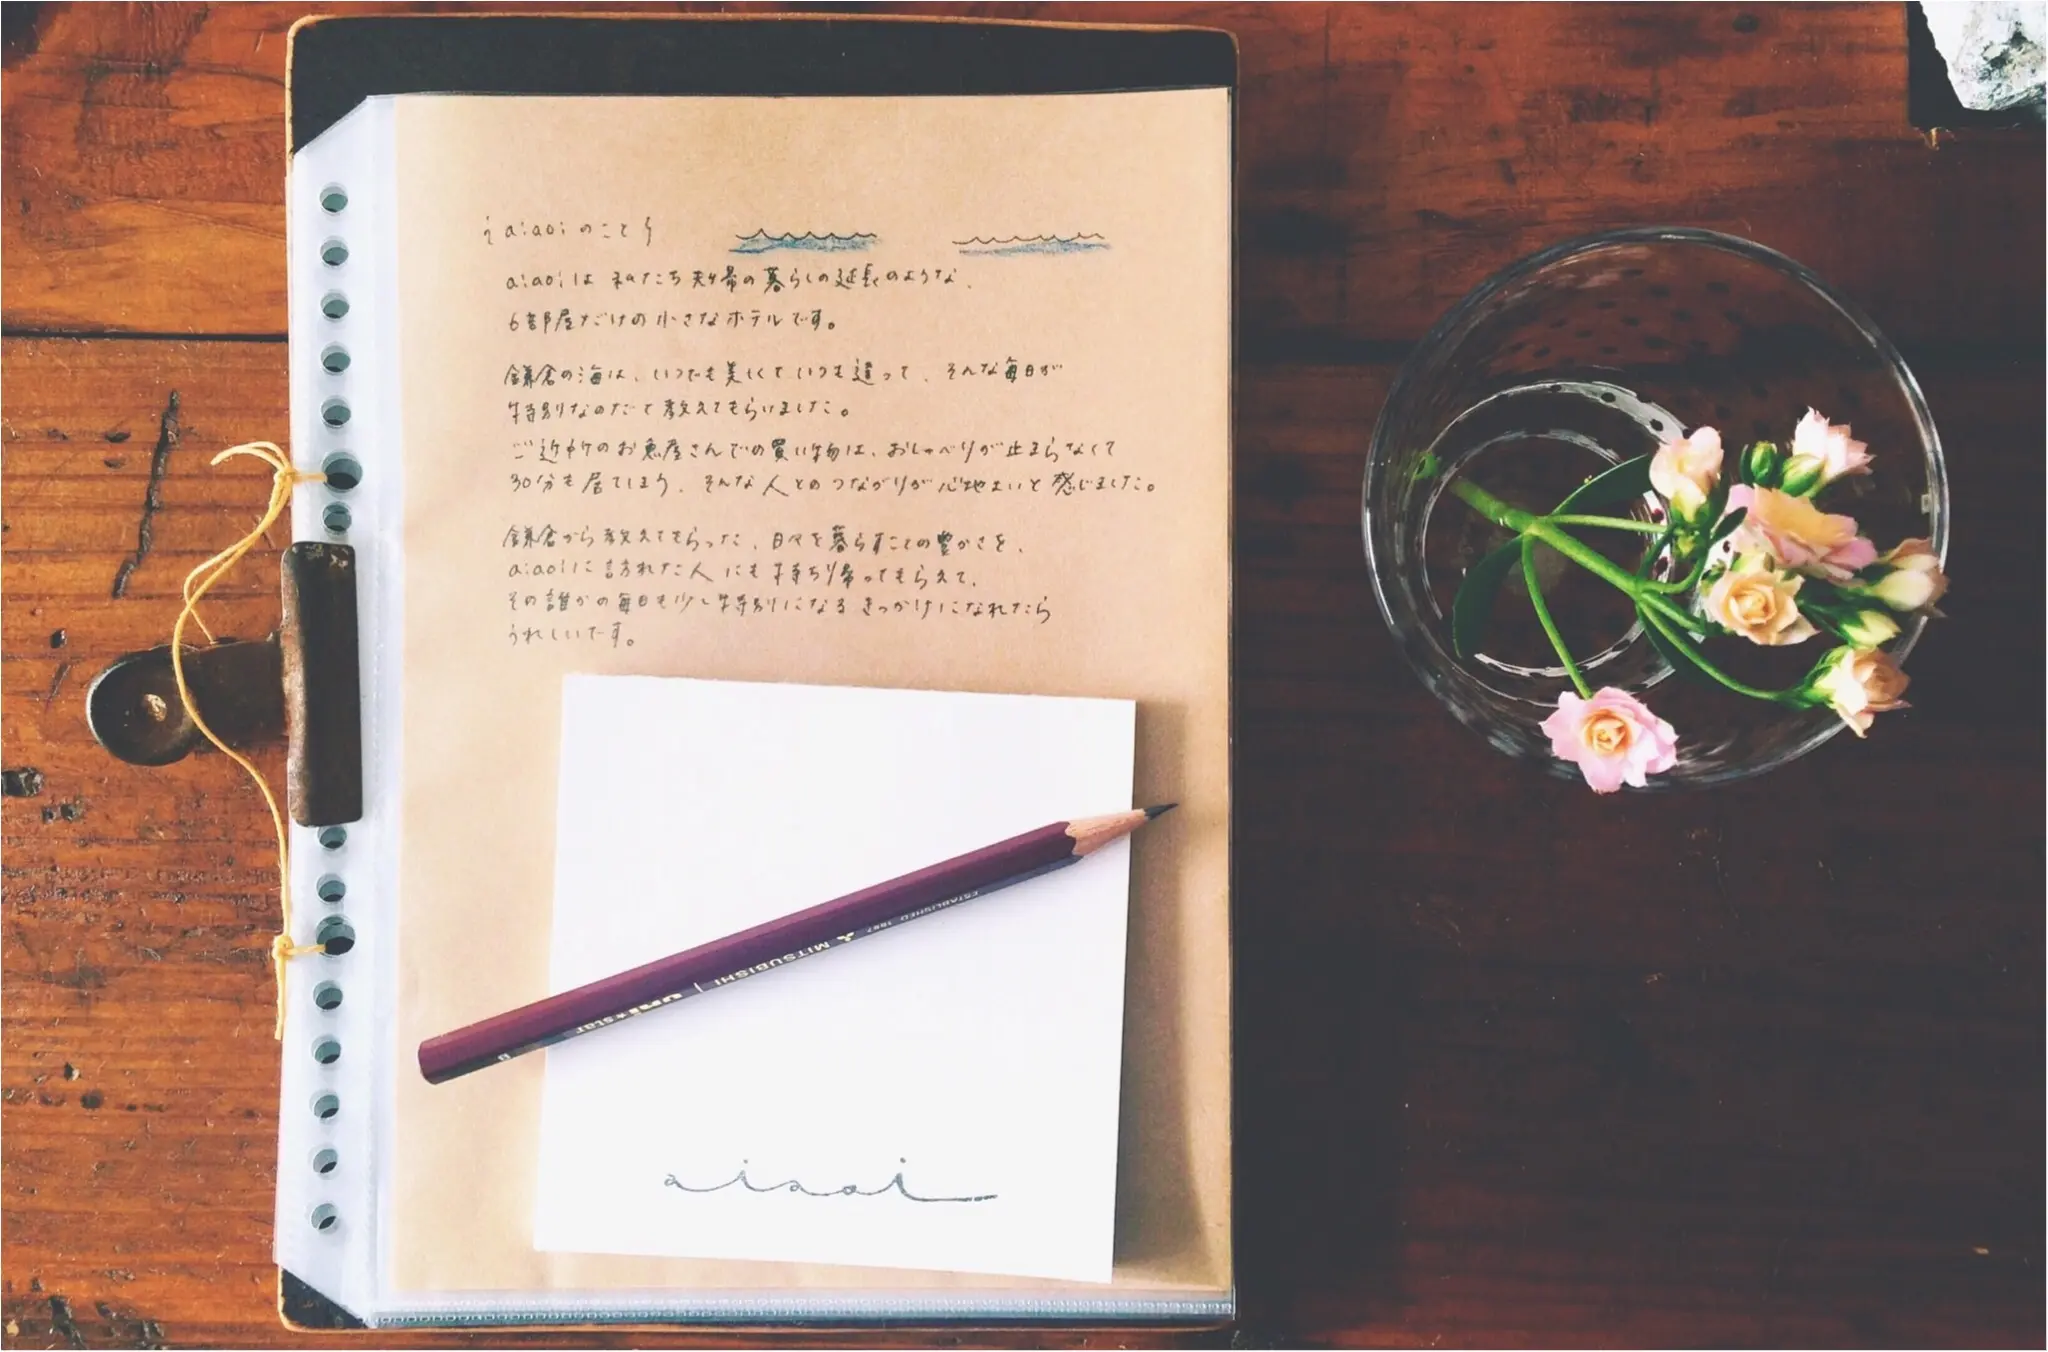 aiaoiのこと
aiaoiは私たち夫婦の暮らしの延長のような、
6部屋だけの小さなホテルです。
鎌倉の海は、いつでも美しくていつも違って、そんな毎日が
特別なのだと教えてもらいました。
ご近所のお魚屋さんでの買い物は、おしゃべりが止まらなくて
30分も居てしまう、そんな人とのつながりが心地よいと感じました。
鎌倉から教えてもらった、日々を暮らすことの豊かさを、
aiaoiに訪れた人にも持ち帰ってもらえて、
その誰かの毎日も少し特別になるきっかけになれたら
うれしいです。
ESTABLISHED 1887
MITSUBISHI
uni★star
B
aiaoi